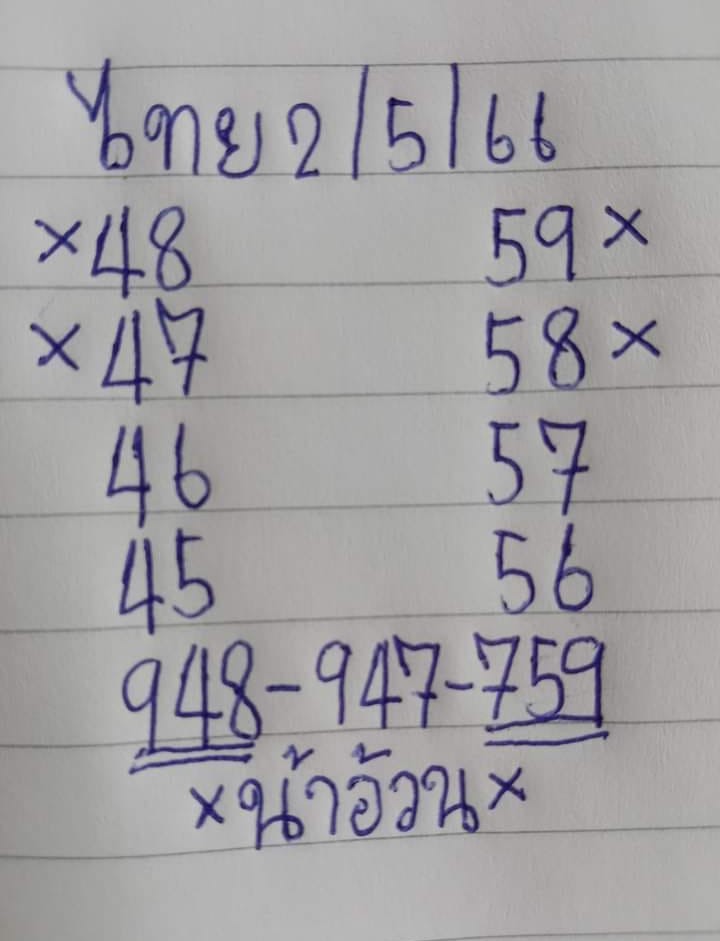 ไทย 2/5/66
×48 59×
×47 58×
46 57
45 56
948-947-759
×น้าอ้วน×